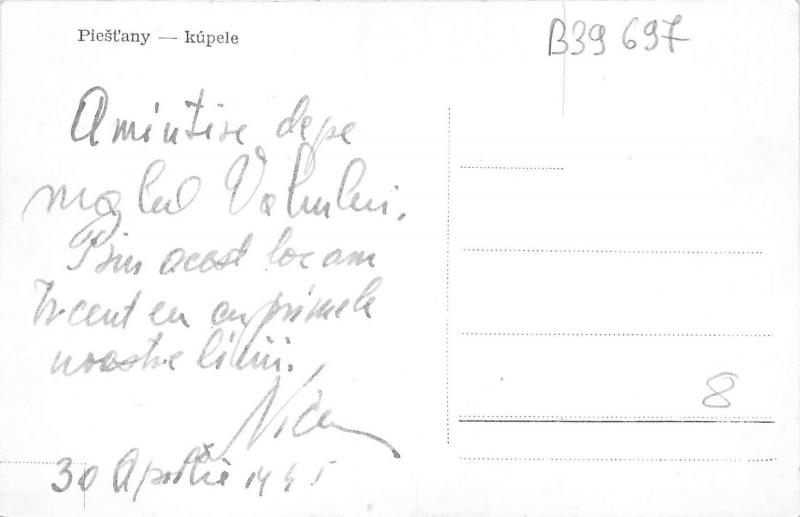 Piešťany — kúpele
B39 697
Amintire depe
malul Vahului.
Prin acest loc am
trecut eu cu primele
noastre linii.
30 Aprilie 1945
8